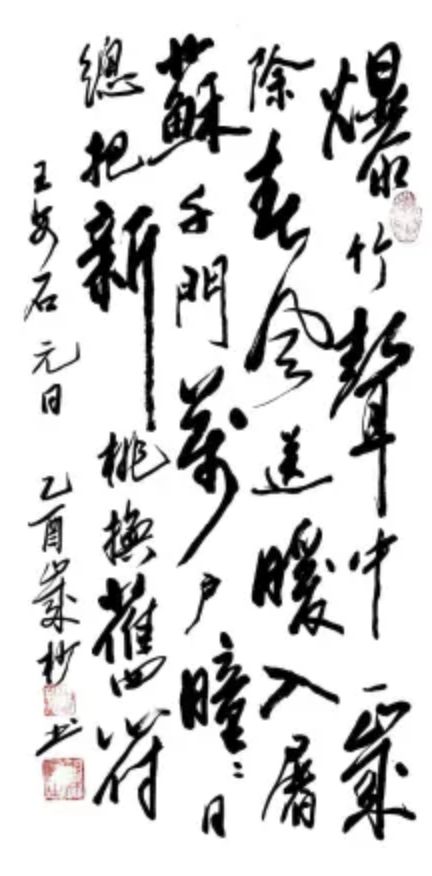 爆竹聲中一歲
除春風送暖入屠
蘇千門萬戶曈〻日
總把新桃換舊符
王安石元日 乙酉歲杪书